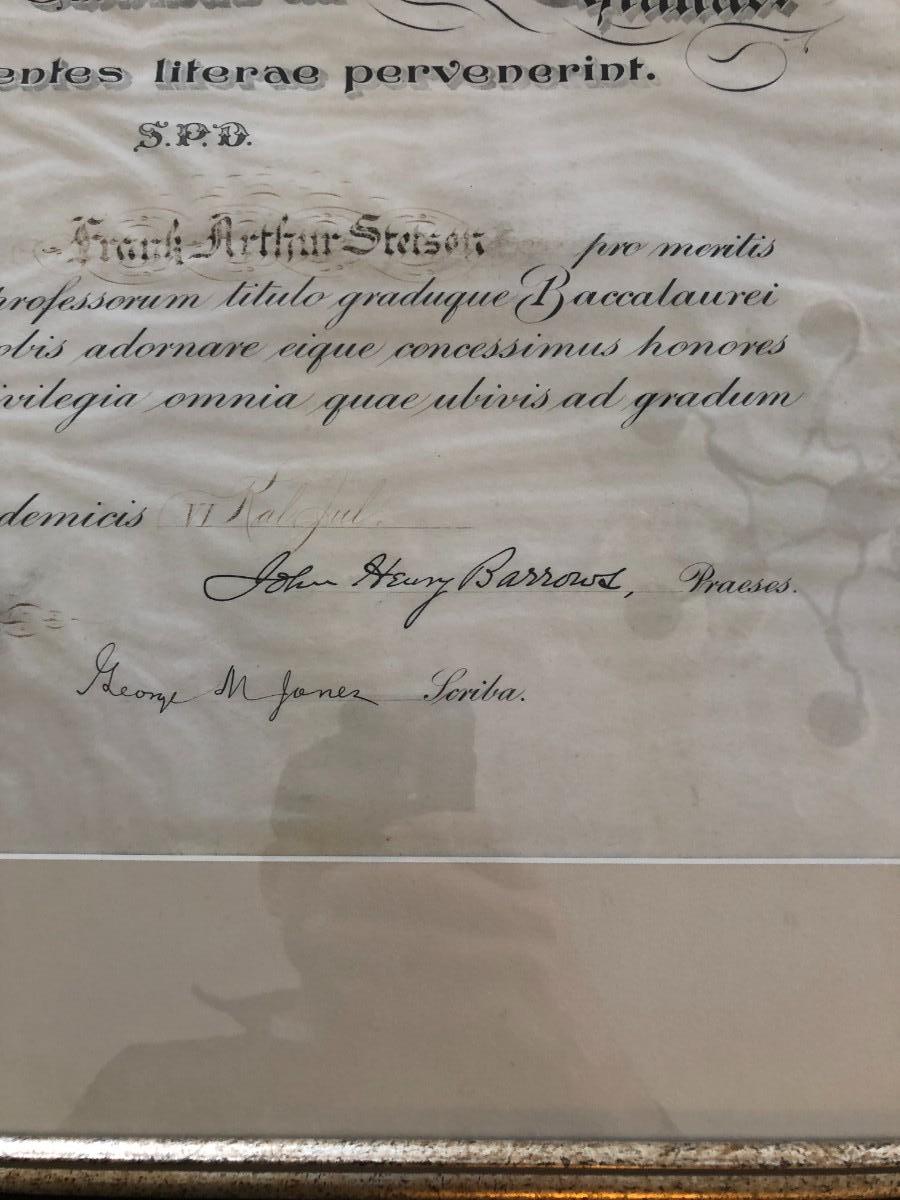 entes literae pervenerint.
S.P.D.
Frank Arthur Stetson pro meritis
professorum titulo graduque Baccalaurei
obis adornare eique concessimus honores
ivilegia omnia quae ubivis ad gradum
demicis VI Kal. Jul.
John Henry Barrows, Praeses.
George M Jones Scriba.